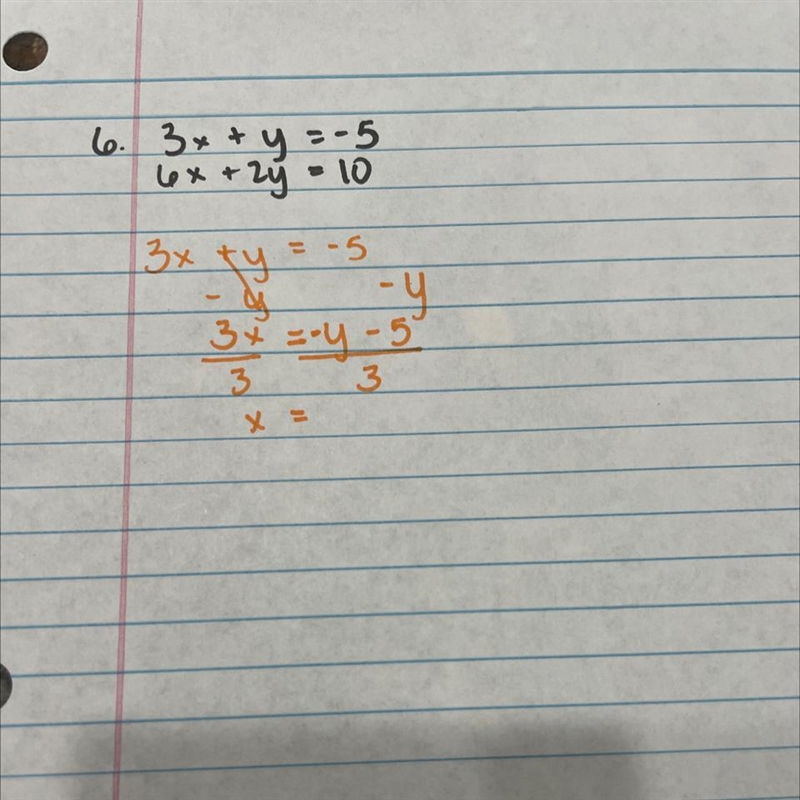 6. 3x + y = -5
6x + 2y = 10
3x + y = -5
- y - y
3x = -y - 5
3 3
x =